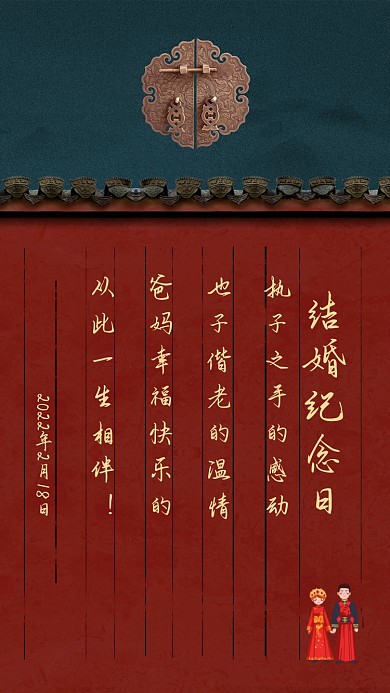 结婚纪念日
执子之手的感动
也子偕老的温情
爸妈幸福快乐的
从此一生相伴！
2022年2月18日